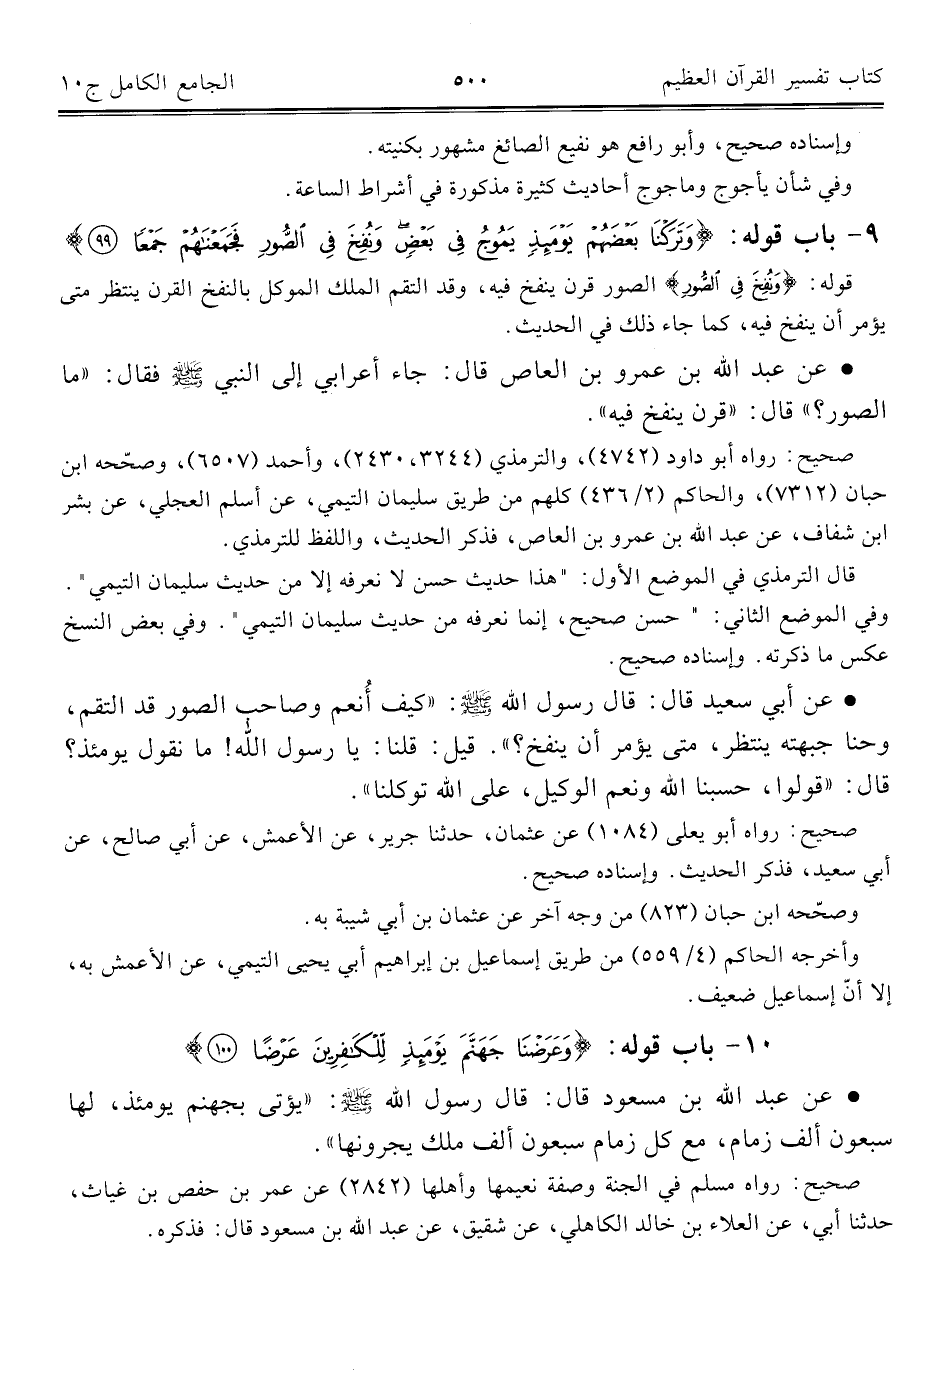 كتاب تفسير القرآن العظيم ٥٠٠ الجامع الكامل ج١٠
وإسناده صحيح، وأبو رافع هو نفيع الصائغ مشهور بكنيته.
وفي شأن يأجوج وماجوج أحاديث كثيرة مذكورة في أشراط الساعة.
٩- باب قوله: ﴿وَتَرَكْنَا بَعْضَهُمْ يَوْمَئِذٍ يَمُوجُ فِي بَعْضٍ ۖ وَنُفِخَ فِي الصُّورِ فَجَمَعْنَاهُمْ جَمْعًا ٩٩﴾
قوله: ﴿وَنُفِخَ فِي الصُّورِ﴾ الصور قرن ينفخ فيه، وقد التقم الملك الموكل بالنفخ القرن ينتظر متى
يؤمر أن ينفخ فيه، كما جاء ذلك في الحديث.
• عن عبد الله بن عمرو بن العاص قال: جاء أعرابي إلى النبي ﷺ فقال: «ما
الصور؟» قال: «قرن ينفخ فيه».
صحيح: رواه أبو داود (٤٧٤٢)، والترمذي (٢٤٣٠،٣٢٤٤)، وأحمد (٦٥٠٧)، وصحّحه ابن
حبان (٧٣١٢)، والحاكم (٢/ ٤٣٦) كلهم من طريق سليمان التيمي، عن أسلم العجلي، عن بشر
ابن شفاف، عن عبد الله بن عمرو بن العاص، فذكر الحديث، واللفظ للترمذي.
قال الترمذي في الموضع الأول: "هذا حديث حسن لا نعرفه إلا من حديث سليمان التيمي".
وفي الموضع الثاني: " حسن صحيح، إنما نعرفه من حديث سليمان التيمي". وفي بعض النسخ
عكس ما ذكرته. وإسناده صحيح.
• عن أبي سعيد قال: قال رسول الله ﷺ: «كيف أُنعم وصاحب الصور قد التقم،
وحنا جبهته ينتظر، متى يؤمر أن ينفخ؟». قيل: قلنا: يا رسول الله! ما نقول يومئذ؟
قال: «قولوا، حسبنا الله ونعم الوكيل، على الله توكلنا».
صحيح: رواه أبو يعلى (١٠٨٤) عن عثمان، حدثنا جرير، عن الأعمش، عن أبي صالح، عن
أبي سعيد، فذكر الحديث. وإسناده صحيح.
وصحّحه ابن حبان (٨٢٣) من وجه آخر عن عثمان بن أبي شيبة به.
وأخرجه الحاكم (٤/ ٥٥٩) من طريق إسماعيل بن إبراهيم أبي يحيى التيمي، عن الأعمش به،
إلا أنّ إسماعيل ضعيف.
١٠- باب قوله: ﴿وَعَرَضْنَا جَهَنَّمَ يَوْمَئِذٍ لِّلْكَافِرِينَ عَرْضًا ١٠٠﴾
• عن عبد الله بن مسعود قال: قال رسول الله ﷺ: «يؤتى بجهنم يومئذ، لها
سبعون ألف زمام، مع كل زمام سبعون ألف ملك يجرونها».
صحيح: رواه مسلم في الجنة وصفة نعيمها وأهلها (٢٨٤٢) عن عمر بن حفص بن غياث،
حدثنا أبي، عن العلاء بن خالد الكاهلي، عن شقيق، عن عبد الله بن مسعود قال: فذكره.